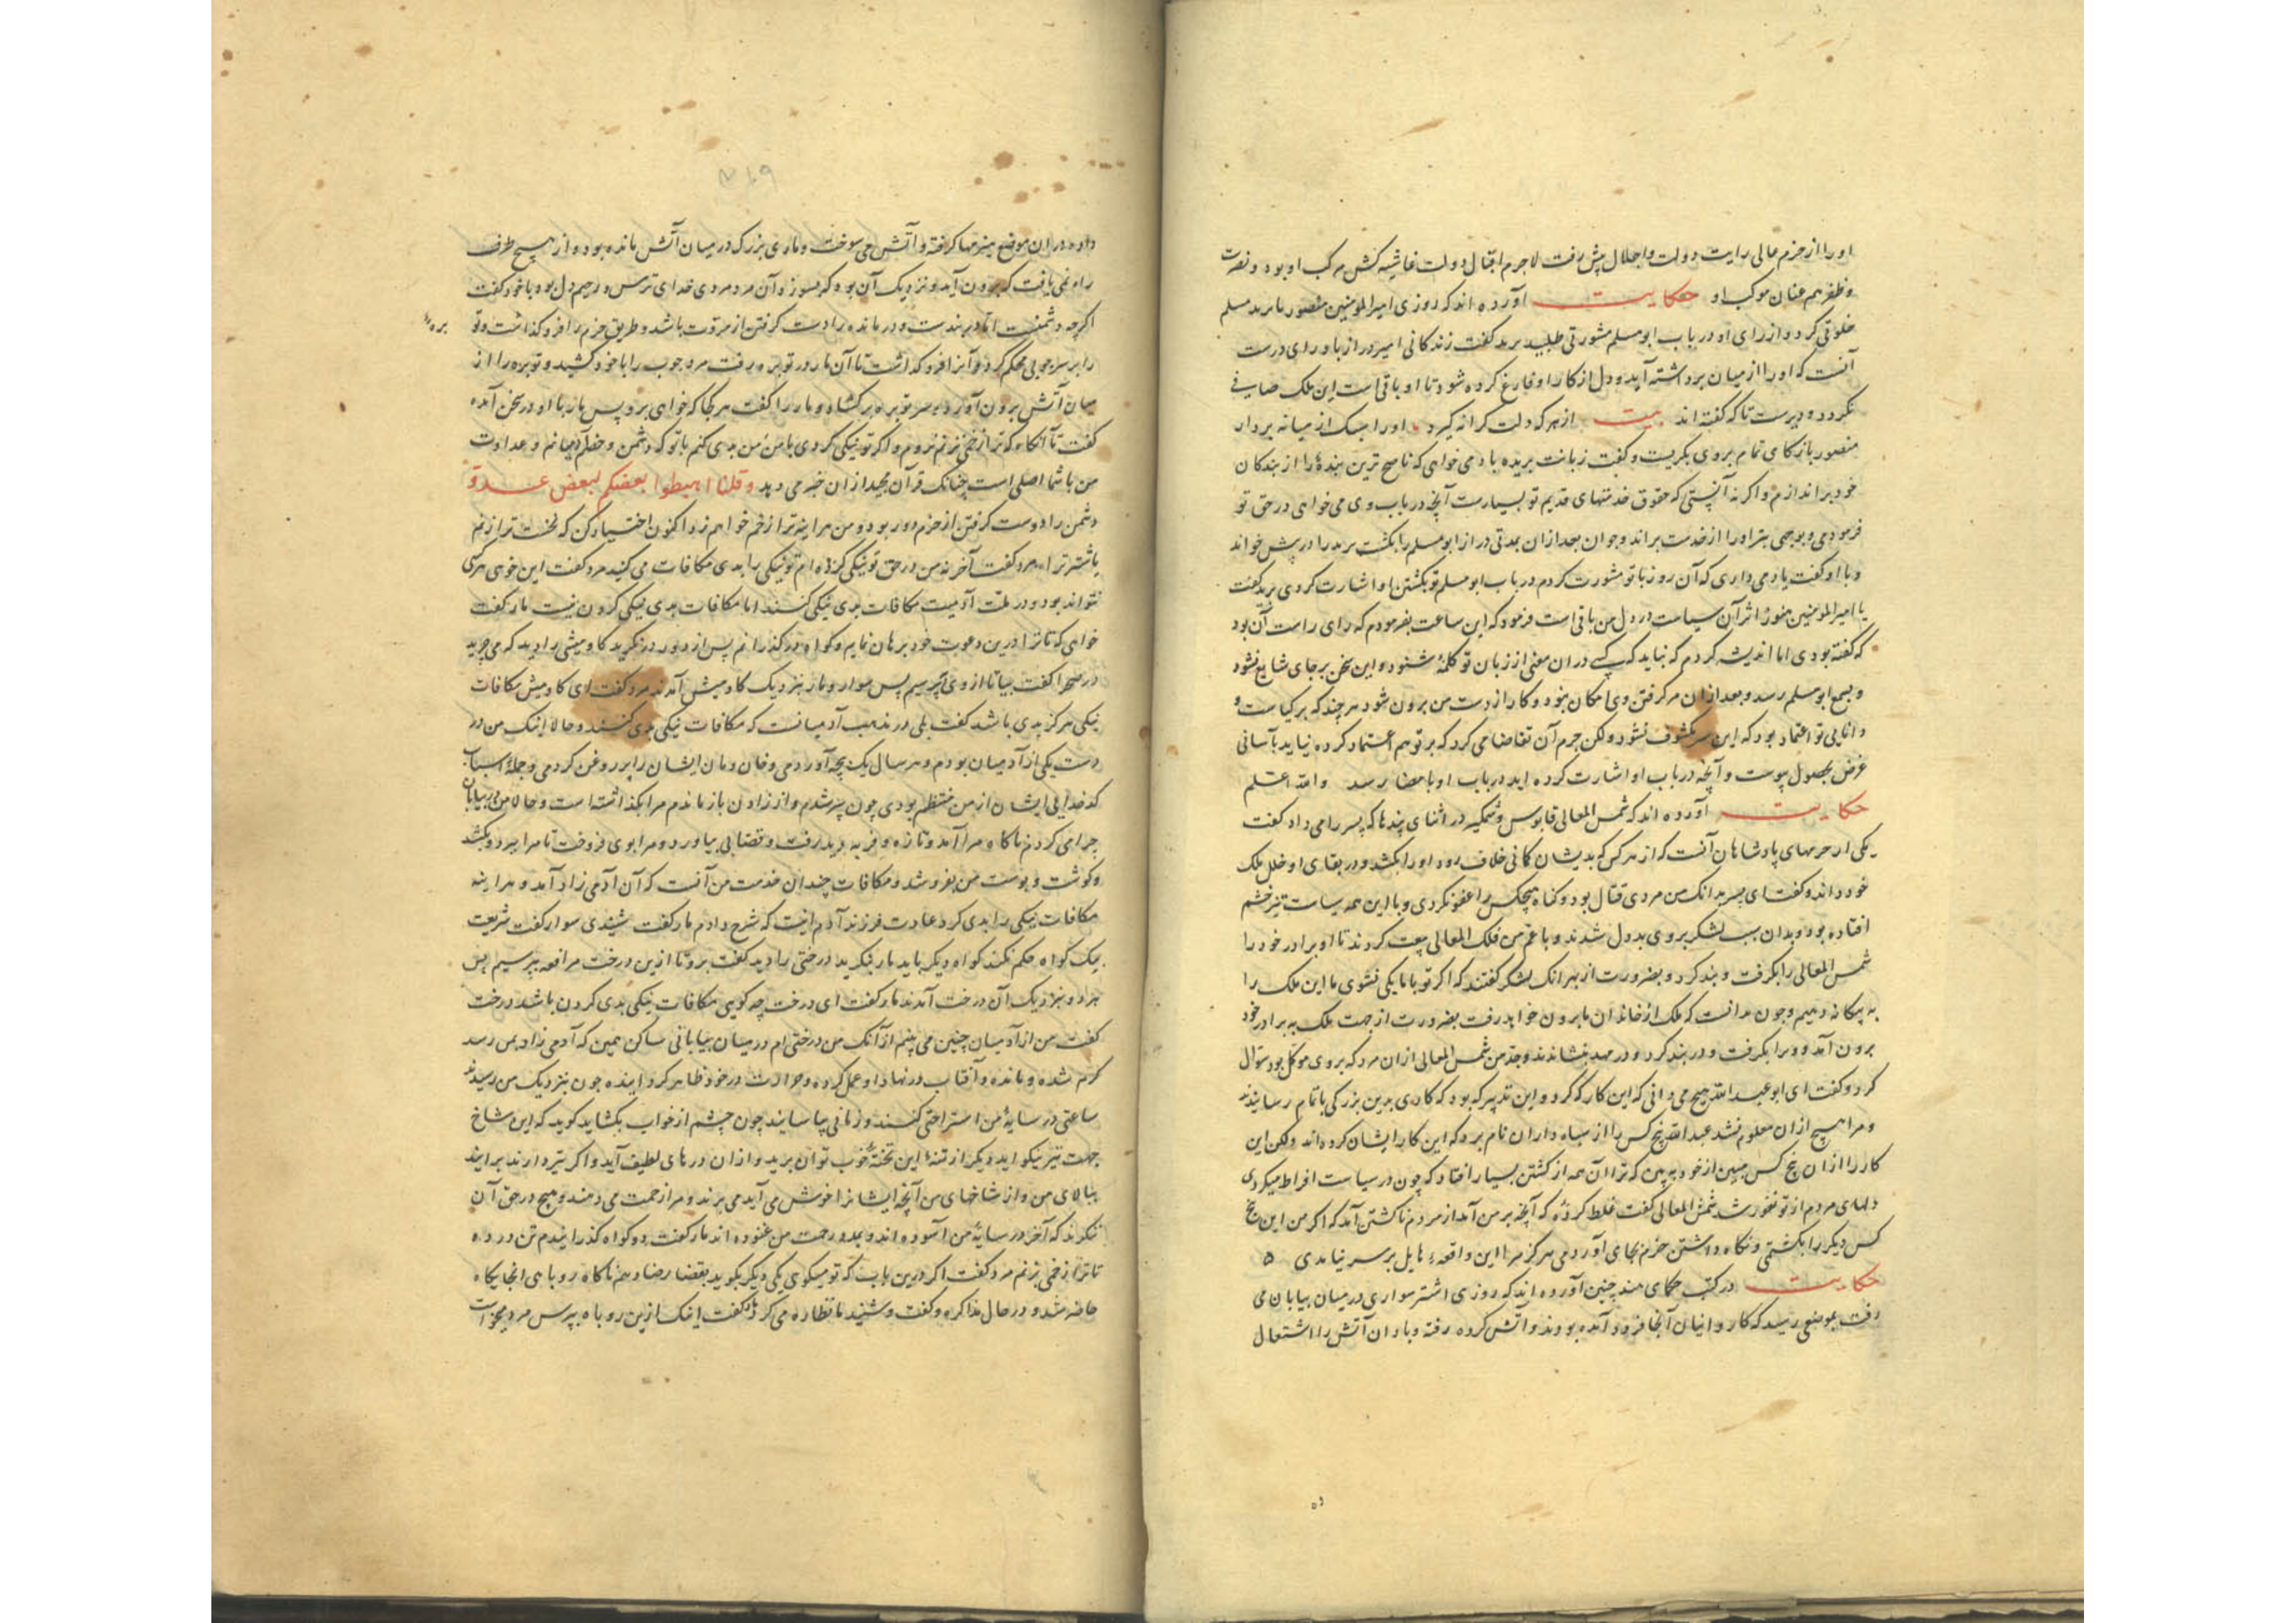 اورا از حزم عالی رایت دولت و اجلال پیش رفت لاجرم اقبال دولت غاشیه کش مرکب او بود و نصرت
و ظفر هم عنان موکب او حکایت آورده اند که روزی امیر المومنین منصور با مسلم
خلوتی کرد و از رای او در باب ابومسلم مشورتی طلبید گفت زندگانی امیر دراز باد رای درست
آنست که او را از میان برداشته آید و دل از کار او فارغ کرده شود تا او باقی است این ملک صافی
نکردد و دیرست تا که گفته اند بیت از هر که دلت کرانه گیرد او را سبک از میانه بردار
منصور باز کامی تمام بروی نگریست و گفت زبانت بریده باد می خواهی که ناصح ترین بندهٔ را از بندکان
خود براندازم و اگر نه آنستی که حقوق خدمتهای قدیم تو بسیارست آنچه در باب وی می خواهی در حق تو
فرمودمی و بوجهی بتر او را از خدمت براند و چون بعد از ان بمدتی دراز ابومسلم را بکشت را در پیش خواند
و با او گفت یاد می داری که آن روز با تو مشورت کردم در باب ابومسلم تو بکشتن او اشارت کردی گفت
یا امیر المومنین هنوز اثر آن سیاست در دل من باقی است فرمود که این ساعت بفرمودم که رای راست آن بود
که گفته بودی اما اندیشه کردم که نباید که کسی در ان معنی از زبان تو کلمهٔ شنود و این سخن بر جای شایع شود
و بسمع ابومسلم رسد و بعد از ان مرا گرفتن وی امکان نبود و کار از دست من برون شود هر چند که بر کیاست و
دانایی تو اعتماد بود که این سر مکشوف نشود ولکن حزم آن تقاضا می کرد که بر تو هم اعتماد کرده نیاید تا بآسانی
غرض بحصول پیوست و آنچه در باب او اشارت کرده اید در باب او بامضا رسد والله اعلم
حکایت آورده اند که شمس المعالی قابوس وشمگیر در اثنای پندها که پسر را می داد گفت
یکی از حزمهای پادشاهان آنست که از هر کس که بدیشان گمانی خلاف رود او را بکشد و در بقای او خلل ملک
خود داند و گفت ای پسر بدانک من مردی قتال بود و گناه هیچکس را عفو نکردی و با این همه سیاست تیز خشم
افتاده بود و بدان سبب لشکر بروی بددل شدند و با عم من فلک المعالی بیعت کردند تا او برادر خود را
شمس المعالی را بگرفت و بند کرد و بضرورت از بهر انک لشکر گفتند که اگر تو با ما یکی نشوی ما این ملک را
به بیگانه دهیم و چون بدانست که ملک از خاندان ما برون خواهد رفت بضرورت از جهت ملک به برادر خود
برون آمد و ویرا بگرفت و در بند کرد و در مهد بنشاندند و جد من شمس المعالی از ان مرد که بروی موکل بود سوال
کرد و گفت ای ابو عبد الله هیچ می دانی که این کار که کرد و این تدبیر که بود که کاری بدین بزرگی باتمام رسانیدند
و مرا هیچ از ان معلوم نشد عبد الله پنج کس را از سپاه داران نام برد که این کار ایشان کرده اند ولکن این
کار را از ان پنج کس مبین از خود ببین که ترا آن همه از کشتن بسیار افتاد که چون در سیاست افراط میکردی
دلهای مردم از تو نفور شد شمس المعالی گفت غلط کردهٔ که آنچه بر من آمد از مردم ناکشتن آمد که اگر من این پنج
کس دیگر را بکشتمی و نگاه داشتن حزم بجای آوردمی هرگز مرا این واقعهٔ هایل بر سر نیامدی ۵
حکایت در کتب حکمای هند چنین آورده اند که روزی اشتر سواری در میان بیابان می
رفت بموضعی رسید که کاروانیان آنجا فرود آمده بودند و آتش کرده رفته و باد ان آتش را اشتعال
داده در ان موضع هیزمها گرفته و آتش می سوخت و ماری بزرگ در میان آتش مانده بود و از هیچ طرف
راه نمی یافت که برون آید و نزدیک آن بود که بسوزد آن مرد مردی خدای ترس و رحیم دل بود با خود گفت
اگرچه دشمنست اما در بندست و درمانده را دست گرفتن از مروت باشد و طریق حزم را فرو گذاشت و تو
بره
را بر سر چوبی محکم کرد و آنرا فرو گذاشت تا آن مار در توبره رفت مرد چوب را با خود کشید و توبره را از
میان آتش برون آورد و سر توبره برگشاد و مار را گفت هر کجا که خواهی برو پس مار با او در سخن آمده
گفت تا آنگاه که ترا زخمی نزنم نروم و اگر تو نیکی کردی با من من بدی کنم با تو که دشمن و عداوت
من با شما اصلی است چنانک قرآن مجید از ان خبر می دهد وقلنا اهبطوا بعضکم لبعض عدو
دشمن را دوست گرفتن از حزم دور بود و من هر آینه ترا زخم خواهم زد اکنون اختیار کن که نخست ترا زنم
یا شتر ترا مرد گفت آخر نه من در حق تو نیکی کرده ام تو نیکی را بدی مکافات می کنی مرد گفت این خوی هرگز
نتواند بود و در ملت آدمیت مکافات بدی نیکی کنند اما مکافات بدی نیکی کردن نیست مار گفت
خواهی که تا ترا درین دعوت خود برهان نمایم و گواه درگذرانم پس از دور درنگرید گاومیشی را دید که می چرید
در صحرا گفت بیا تا از وی بپرسیم پس سوار و مار بنزدیک گاومیش آمدند مرد گفت ای گاومیش مکافات
نیکی هرگز بدی باشد گفت بلی در مذهب آدمیانست که مکافات نیکی بدی کنند و حالا اینک من در
دست یکی از آدمیان بودم و هر سال یک بچه آوردمی و خان و مان ایشان را پر روغن کردمی و جملهٔ اسباب
کدخدایی ایشان از من منتظم بودی چون پیر شدم و از زادن باز ماندم مرا بگذاشته است و حالا من در بیابان
چرا می کردم ناگاه مرا آمد و تازه و فربه دید رفت و قصابی بیاورد و مرا بوی فروخت تا مرا ببرد و بکشد
و گوشت و پوست من بفروشد و مکافات چندان خدمت من آنست که آن آدمی زاد آمد و هر اینه
مکافات نیکی را بدی کرد عادت فرزند آدم اینست که شرح دادم مار گفت شنیدی سوار گفت شریعت
بیک گواه حکم نکند گواه دیگر باید مار نگرید درختی را دید گفت برو تا ازین درخت مرافعه بپرسیم پس
هردو بنزدیک آن درخت آمدند مار گفت ای درخت چه گویی مکافات نیکی بدی کردن باشد درخت
گفت من از آدمیان چنین می بینم از آنک من درختی ام در میان بیابانی ساکن همین که آدمی زاد بمن رسد
گرم شده و مانده و آفتاب در نهاد او عمل کرده و حرارت در خود ظاهر گردانیده چون بنزدیک من رسند
ساعتی در سایهٔ من استراحتی کنند و زمانی بیاسایند چون چشم از خواب بگشاید گوید که این شاخ
جهت تیر نیکو اید و دیگر از تنهٔ این تختهٔ خوب توان برید و از ان درهای لطیف آید و اگر تبر دارند برایند
ببالای من و از شاخهای من آنچه ایشانرا خوش می آید می برند و مرا زحمت می دهند و هیچ در حق آن
ننگرند که آخر در سایهٔ من آسوده اند و بمدد رحمت من غنوده اند مار گفت دو گواه گذرانیدم تن در ده
تا ترا زخمی بزنم مرد گفت اگر درین باب که تو میگوی یکی دیگر بگوید بقضا رضا دهم ناگاه روباهی انجایگاه
حاضر شد و در حال مذاکره و گفت و شنید ما نظاره می کرد مار گفت اینک ازین روباه بپرس مرد میخواست